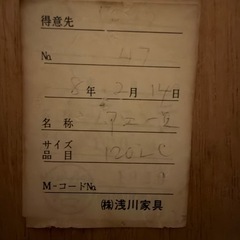 得意先
No. 47
8年2月14日
名称
サイズ
品目 120LC
M-コードNo.
㈱浅川家具